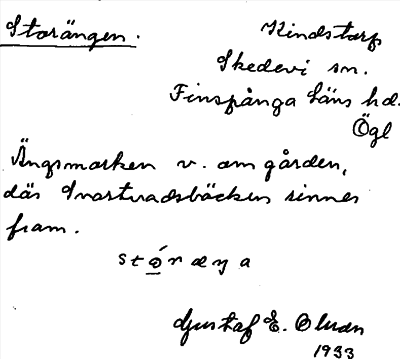 Storängen.
Kindstorp
Skedevi sn.
Finspånga läns hd.
Ögl
Ängsmarken v. om gården,
där Svartvadsbäcken rinner
fram.
Gustaf E.
1933